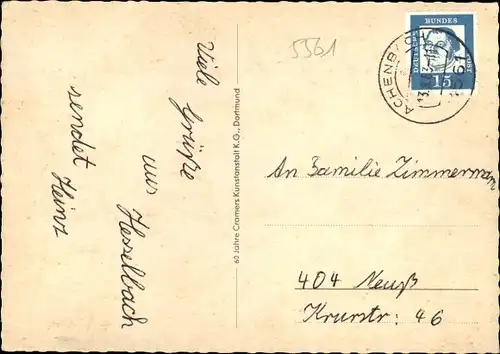 Viele Grüße
aus Hesselbach
sendet
Heinz
60 Jahre Cramers Kunstanstalt K.G., Dortmund
5561
DEUTSCHE
BUNDES
POST
15
An Familie Zimmermann
404 Neuß
46